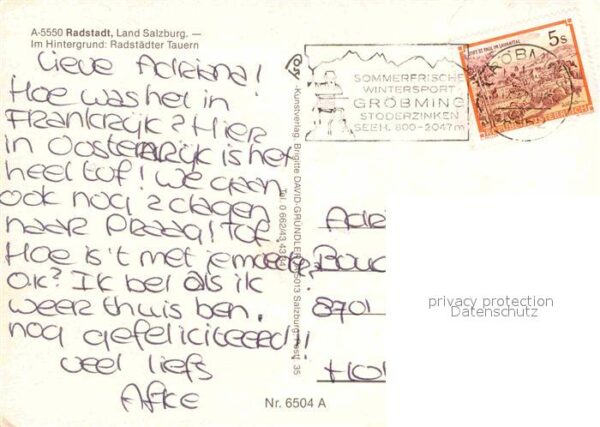 A-5550 Radstadt, Land Salzburg. —
Im Hintergrund: Radstädter Tauern
Lieve Adriana!
Hoe was het in
Frankrijk? Hier
in Oostenrijk is het
heel tof! We gaan
ook nog 2 dagen
naar Praag! Tof
Hoe is 't met je moeder?
OK? Ik bel als ik
weer thuis ben.
nog gefeliciteerd!!
veel liefs
Afke
Kunstverlag Brigitte DAVID-GRÜNDLER
5013 Salzburg, Postf. 35
Tel. 0 662/43 43 94
Nr. 6504 A
SOMMERFRISCHE
WINTERSPORT
GRÖBMING
STODERZINKEN
SEEH. 800-2047m
5s
STIFT ST. PAUL IM LAVANTTAL
Adri
Bouc
8701
Hol
privacy protection
Datenschutz